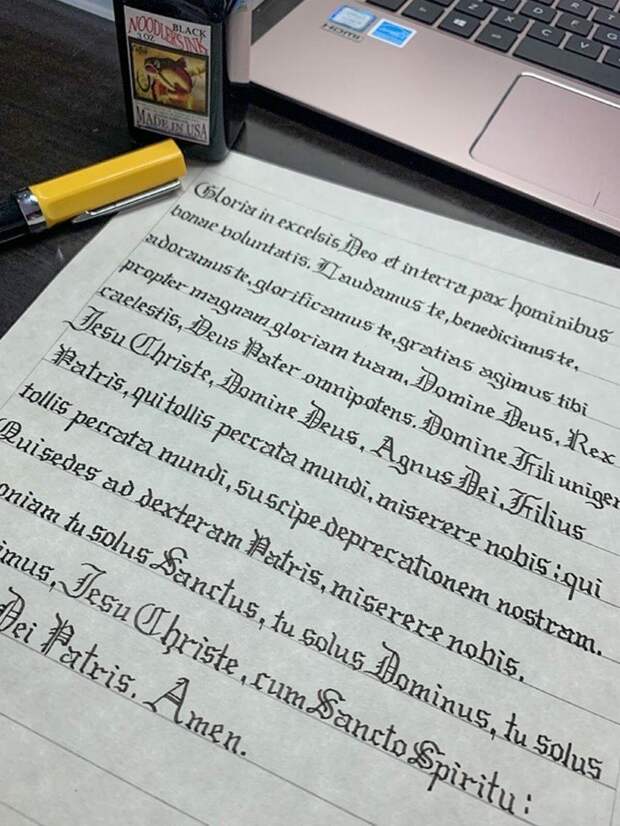 BLACK
3 OZ
NOODLER'S INK
MADE IN USA
Gloria in excelsis Deo et in terra pax hominibus
bonae voluntatis. Laudamus te, benedicimus te,
adoramus te, glorificamus te, gratias agimus tibi
propter magnam gloriam tuam, Domine Deus, Rex
caelestis, Deus Pater omnipotens. Domine Fili unigen
Jesu Christe, Domine Deus, Agnus Dei, Filius
Patris, qui tollis peccata mundi, miserere nobis: qui
tollis peccata mundi, suscipe deprecationem nostram.
Qui sedes ad dexteram Patris, miserere nobis.
oniam tu solus Sanctus, tu solus Dominus, tu solus
imus, Jesu Christe, cum Sancto Spiritu:
Dei Patris. Amen.